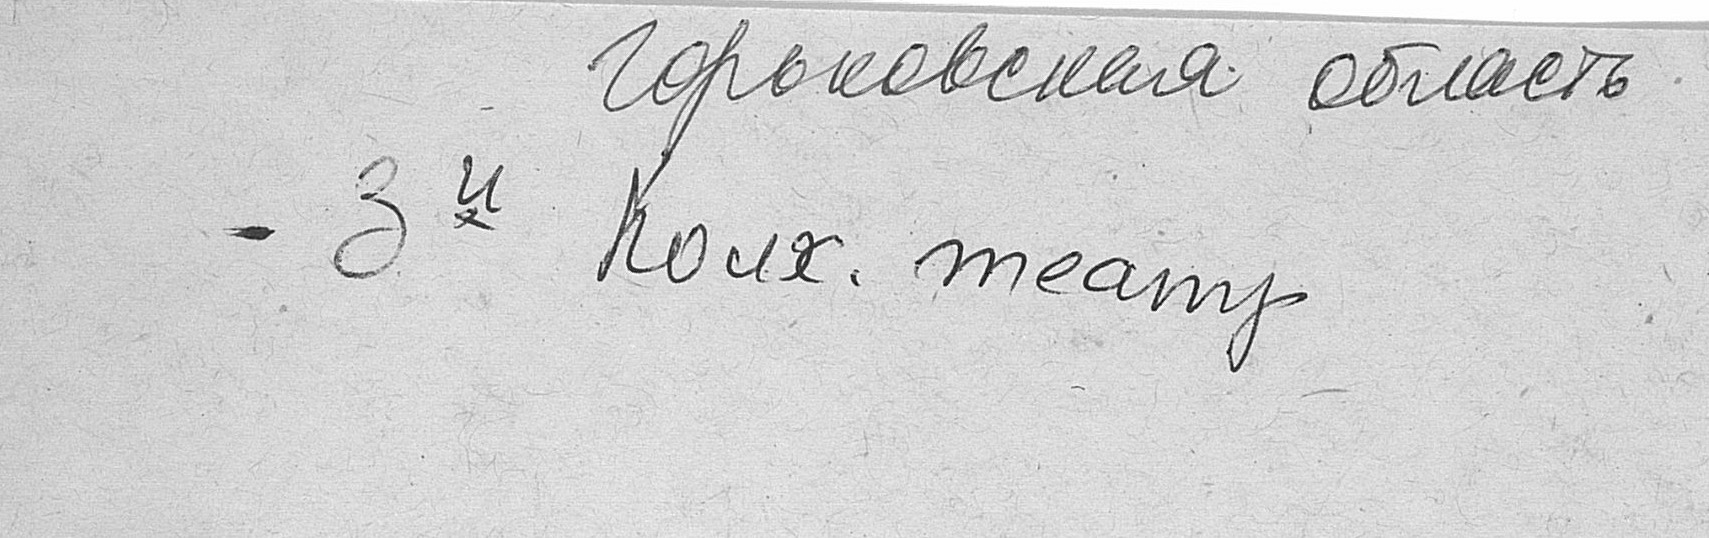 Горьковская область
- 3й Колх. театр